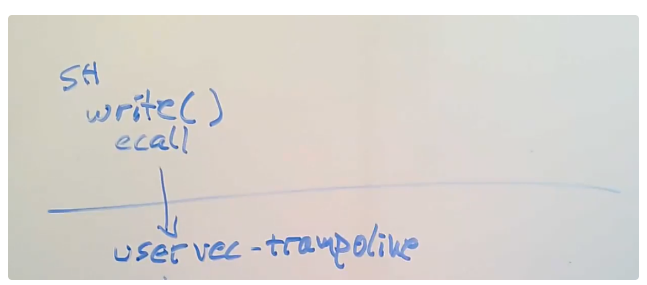 SH
write()
ecall
uservec-trampoline